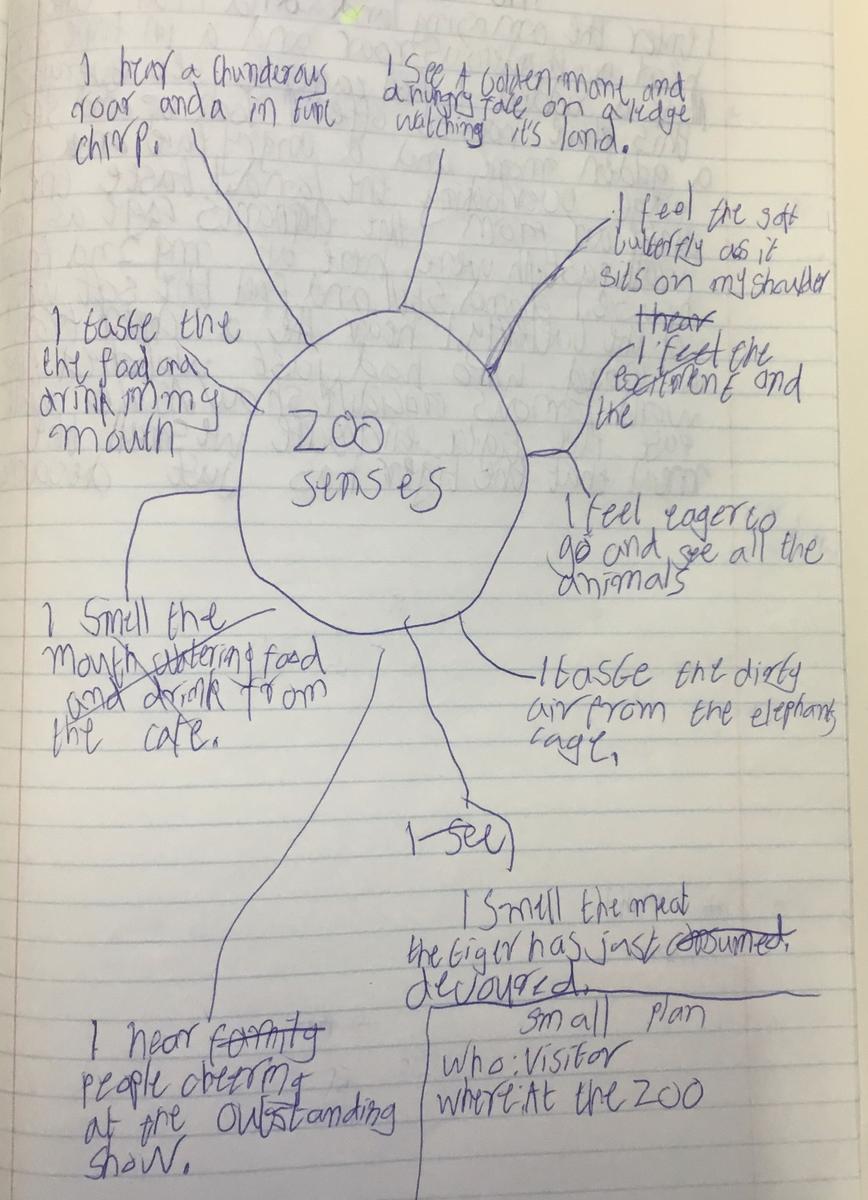 I hear a thunderous
roar and a in tune
chirp.
I See A Golden mane and
a hungry face on a ledge
watching it's land.
I feel the soft
butterfly as it
sits on my shoulder
I hear
I feel the
excitment and
the
I feel eager to
go and see all the
animals
I taste the dirty
air from the elephants
cage,
I see
I Smell the meat
the tiger has just consumed.
devoured.
small plan
who: Visitor
where: At the ZOO
I hear family
people cheering
at the outstanding
show.
I Smell the
mouth watering food
and drink from
the cafe.
I taste the
the food and
drink in my
mouth
ZOO
senses